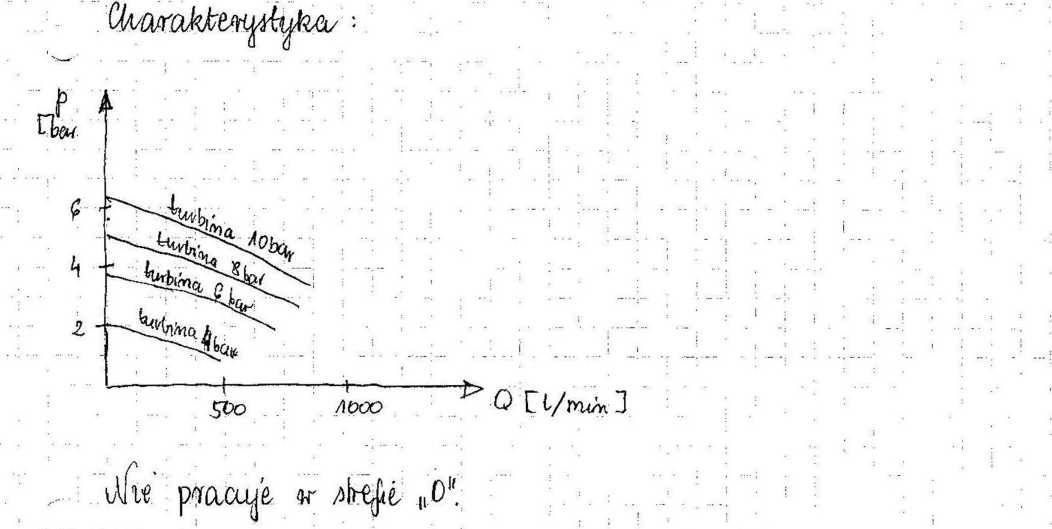 Charakterystyka :
p
[bar
6
4
2
turbina 10bar
turbina 8bar
turbina 6 bar
turbina 4bar
500
1000
Q [l/min]
Nie pracuje w strefie „0".